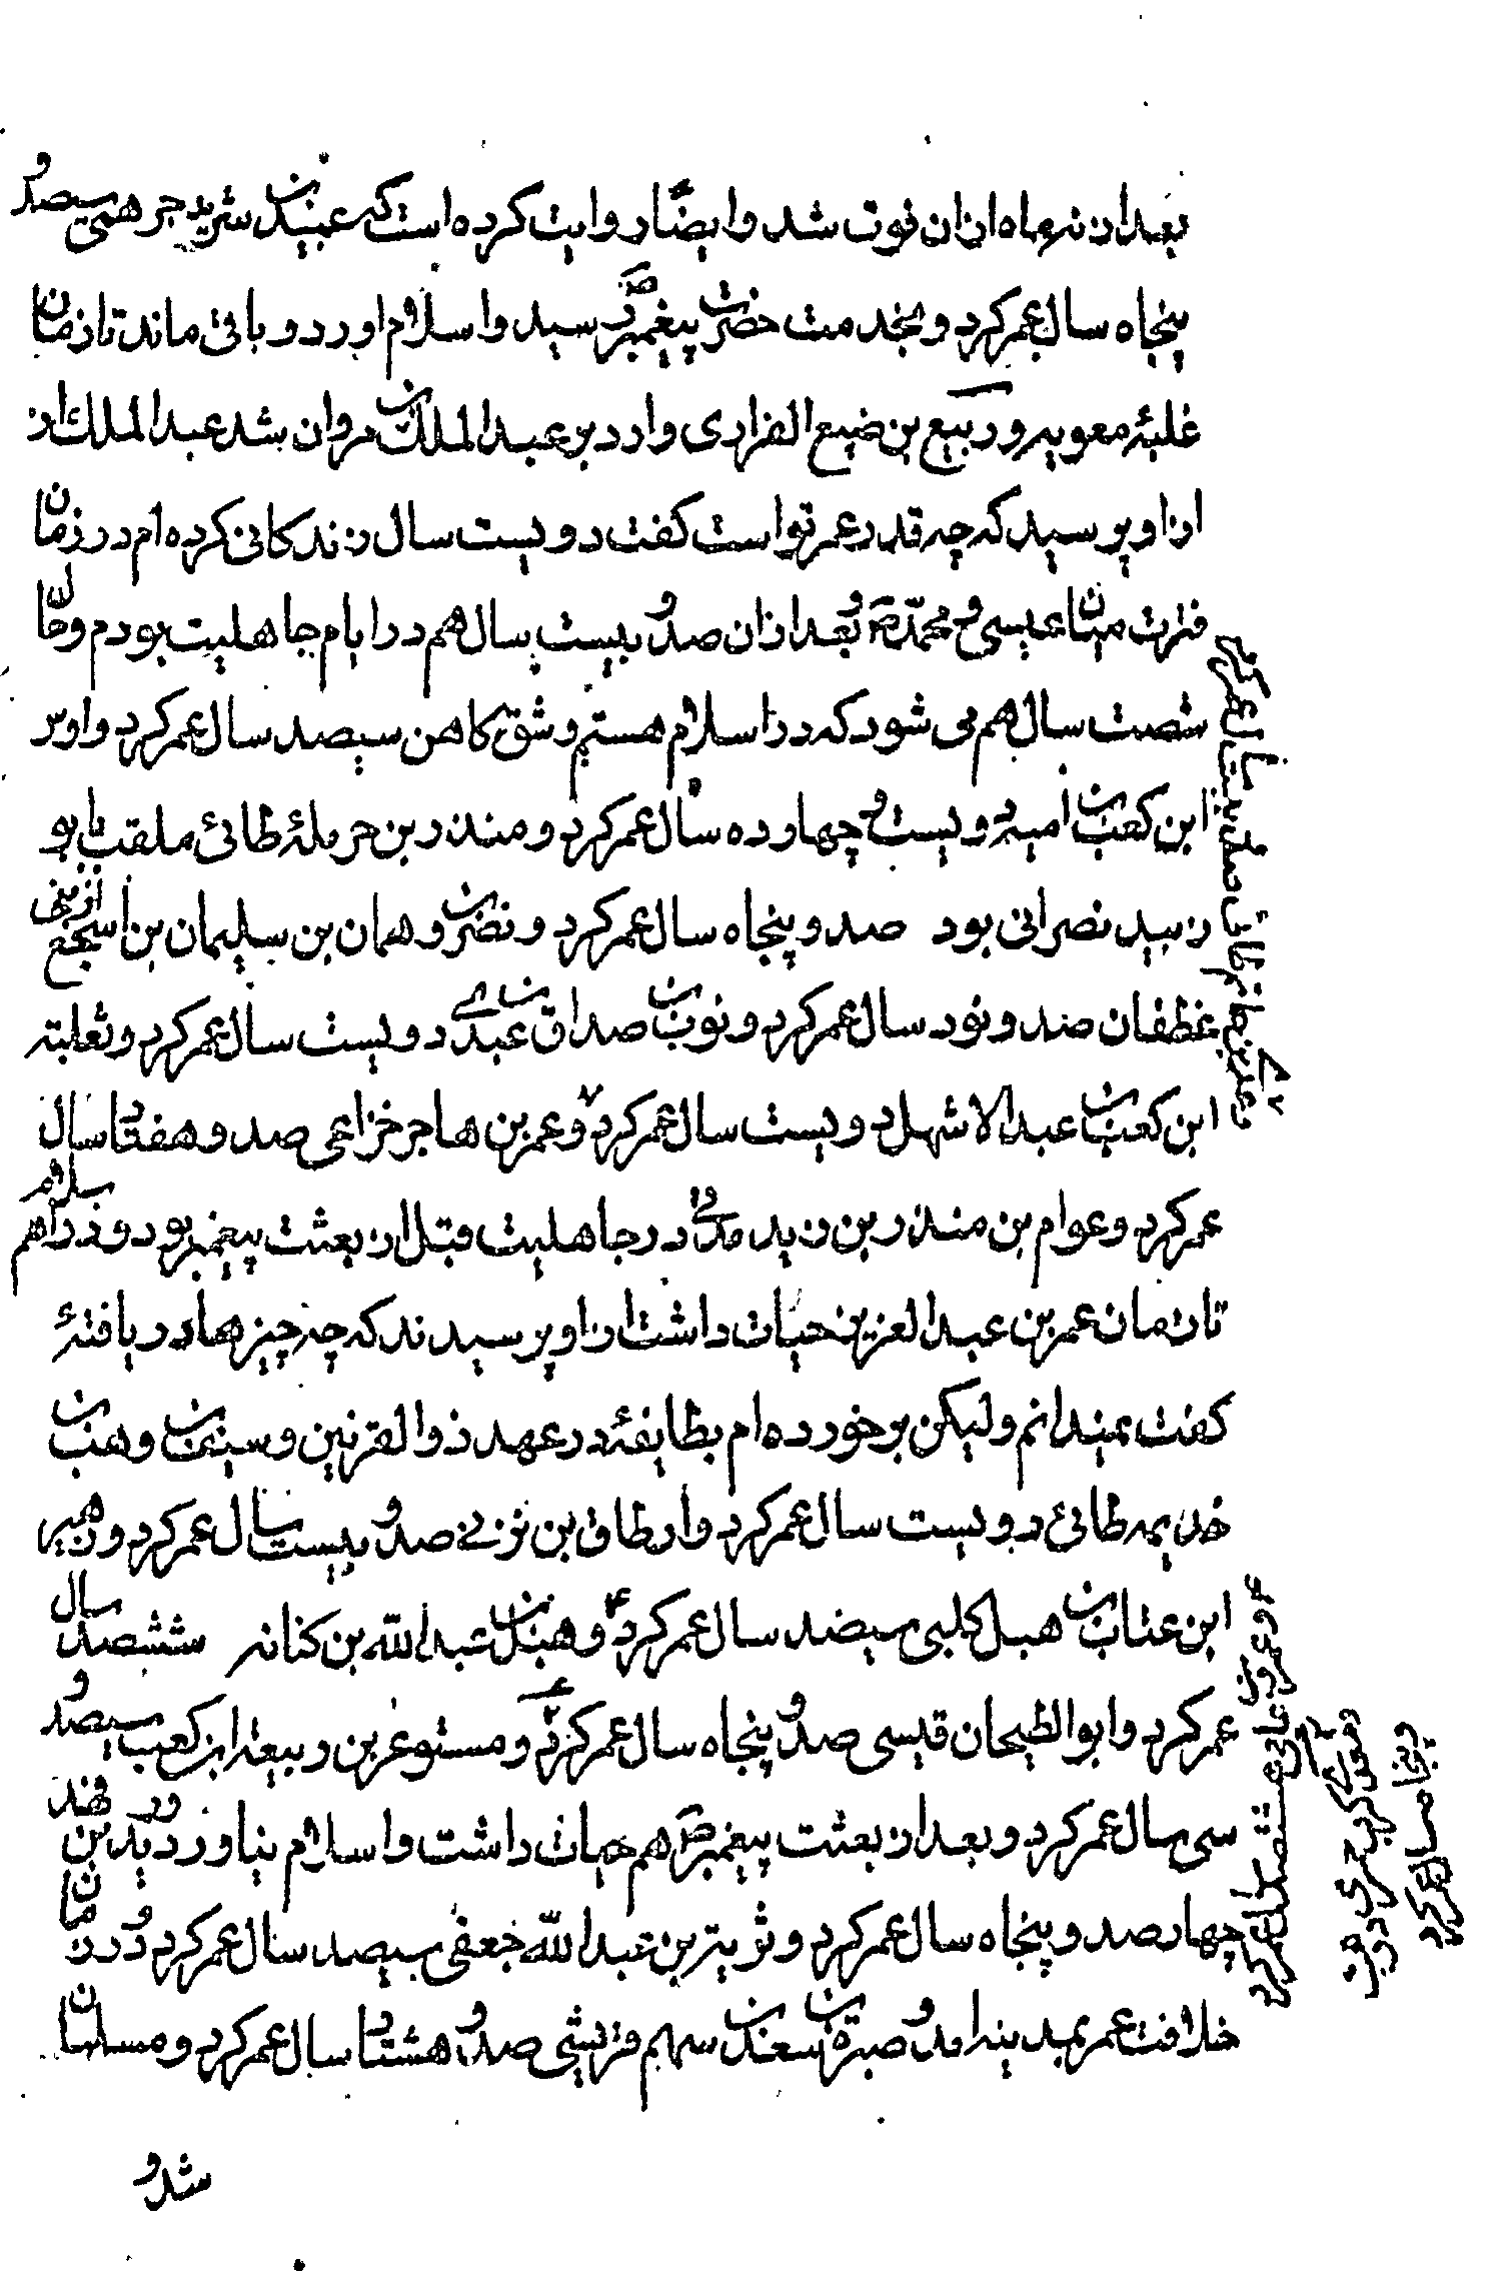 بعد از نه ماه از ان فوت شد وایضًا روایت کرده است که عبید بن شرید جرهمی سیصد و
پنجاه سال عمر کرد و بخدمت حضرت پیغمبر ص رسید و اسلام اورد و باقی ماند تا زمان
غلبهٔ معویه و ربیع بن ضبع الفزاری وارد بر عبد الملک بن مروان شد عبد الملک از
از او پرسید که چه قدر عمر تواست کفت دویست سال زندکانی کرده ام در زمان
فترت میان عیسی و محمّد ص و بعد از ان صد و بیست سال هم در ایام جاهلیت بودم و حالا
شصت سال هم می شود که در اسلام هستم و شق کاهن سیصد سال عمر کرد و اوس
ابن کعب بن امیه دویست و چهارده سال عمر کرد و منذر بن حرملهٔ طائی ملقب بابو
زبید نصرانی بود صد و پنجاه سال عمر کرد و نضر بن دهمان بن سلیمان بن اشجع از بنی
غطفان صد و نود سال عمر کرد و نوب بن صداق بن عبدی دویست سال عمر کرد و ثعلبة
ابن کعب بن عبد الاشهل دویست سال عمر کرد و عمر بن هاجر خزاعی صد و هفتاد سال
عمر کرد و عوام بن منذر بن زید در جاهلیت قبل از بعثت پیغمبر بود و در اسلام هم
تا زمان عمر بن عبد العزیز حیات داشت از او پرسیدند که چه چیزها دریافتهٔ
کفت نمیدانم ولیکن برخورده ام بطایفهٔ در عهد ذوالقرنین و سیف بن وهب بن
خذیمه طائی دویست سال عمر کرد وارطاة بن صد و بیست سال عمر کرد و زهیر
ابن عتاب بن هبل کلبی سیصد سال عمر کرد وهبل بن عبد الله بن کنانه ششصد سال
عمر کرد و ابو الطیحان قیسی صد و پنجاه سال عمر کرد و مستوعر بن ربیعة ابن کعب سیصد و
سی سال عمر کرد و بعد از بعثت پیغمبر ص هم حیات داشت و اسلام نیاورد و درید بن فهند
چهارصد و پنجاه سال عمر کرد و بن عبد الله جعفی سیصد سال عمر کرد و در زمان
خلافت عمر بمدینه امد و صبرة بن سعد بن سهم قریشی صد و هشتاد سال عمر کرد و مسلمان
شد و